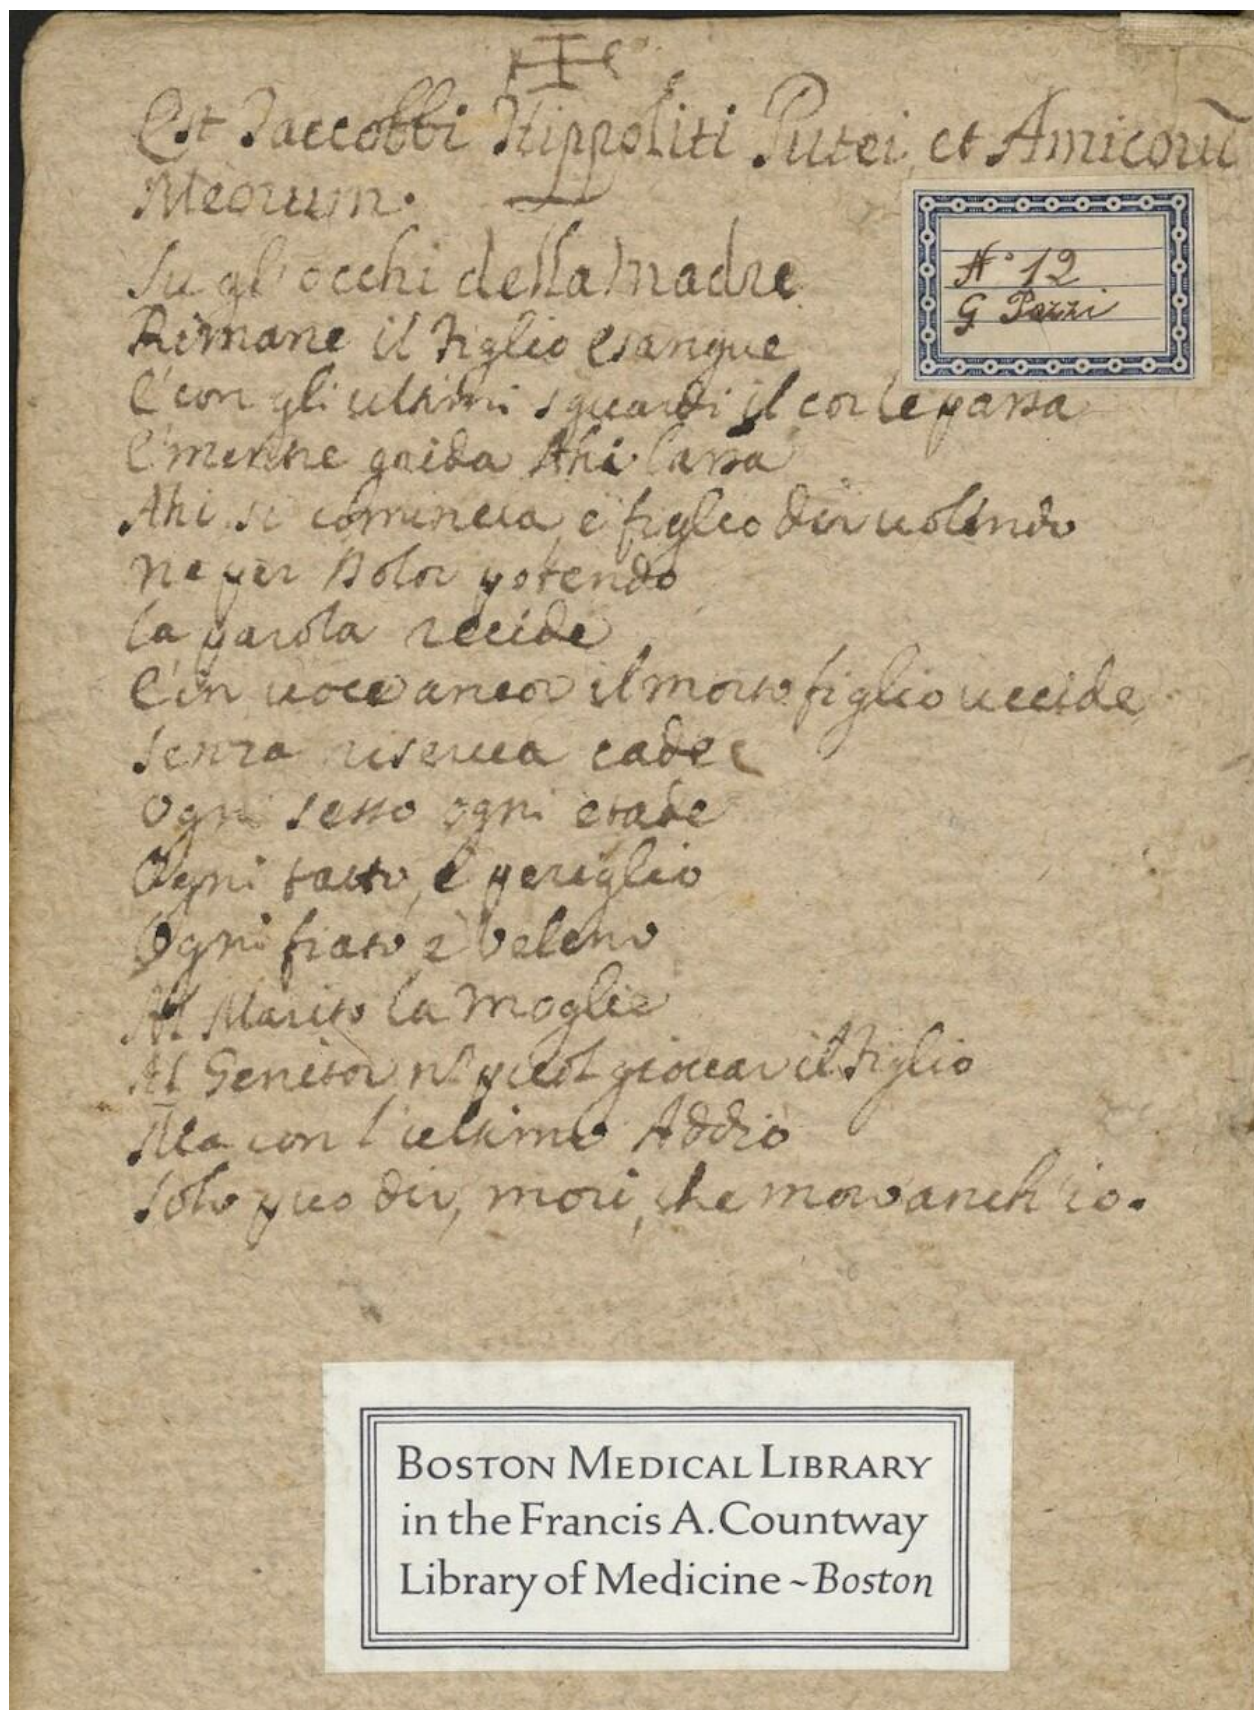 Est Jaccobbi Hippoliti Putei, et Amicorũ
Meorum.
Su gl'occhi della Madre
Rimane il Figlio esangue
E con gli ultimi sguardi il cor le passa
E mentre grida Ahi lassa
Ahi si comincia, e figlio dir uolendo
Ne per dolor potendo
la parola recide
E in uoce ancor il morto figlio uccide
senza riserua cade
Ogni sesso ogni etade
Ogni tatto, è periglio
Ogni fiato è veleno
Al Marito la Moglie
Al Genitor nõ puol giouar il Figlio
Ma con l'ultimo Addio
Solo puo dir, mori, che moro anch'io.
N° 12
G Pozzi
BOSTON MEDICAL LIBRARY
in the Francis A. Countway
Library of Medicine ~ Boston